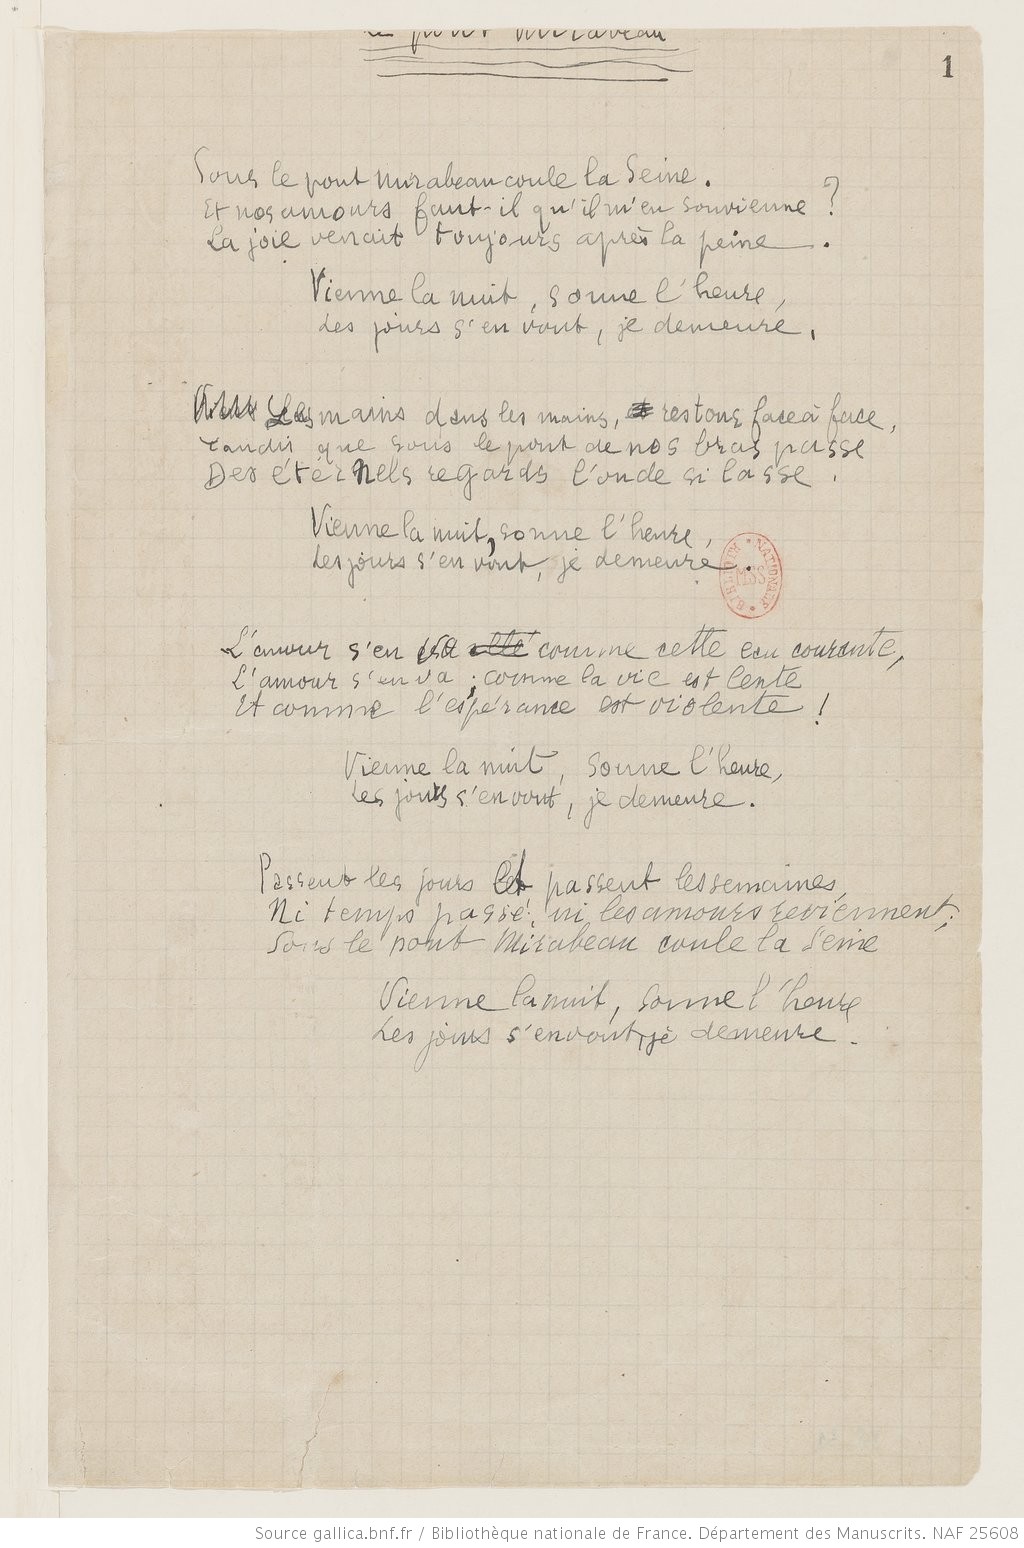 le pont mirabeau
1
Sous le pont Mirabeau coule la Seine.
Et nos amours faut-il qu'il m'en souvienne ?
La joie venait toujours après la peine.
Vienne la nuit, sonne l'heure,
Les jours s'en vont, je demeure.
Les mains dans les mains, restons face à face,
Tandis que sous le pont de nos bras passe
Des éternels regards l'onde si lasse.
Vienne la nuit, sonne l'heure,
Les jours s'en vont, je demeure.
BIBLIOTH NATIONALE
MSS
L'amour s'en va comme cette eau courante,
L'amour s'en va ; comme la vie est lente
Et comme l'espérance est violente !
Vienne la nuit, sonne l'heure,
Les jours s'en vont, je demeure.
Passent les jours et passent les semaines,
Ni temps passé, ni les amours reviennent ;
Sous le pont Mirabeau coule la Seine
Vienne la nuit, sonne l'heure
Les jours s'en vont, je demeure.
Source gallica.bnf.fr / Bibliothèque nationale de France. Département des Manuscrits. NAF 25608